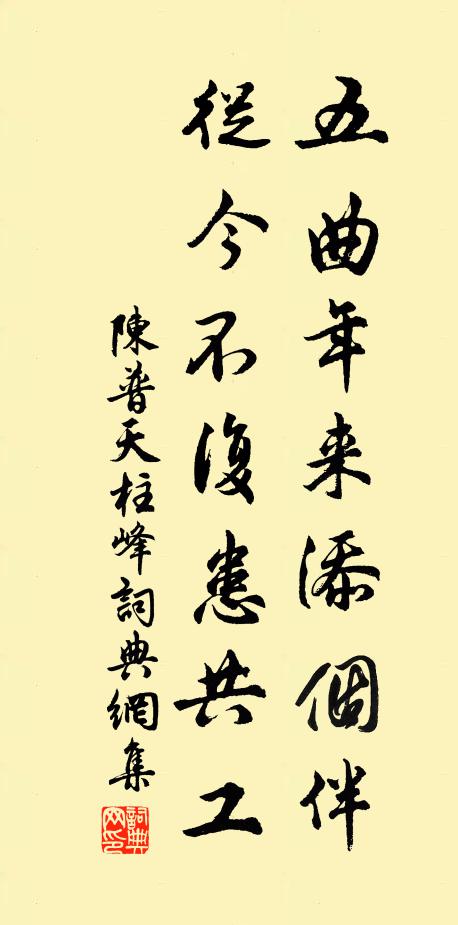 五曲年来添個伴
從今不復患共工
陳普天柱峰詞典網集
詞典网印